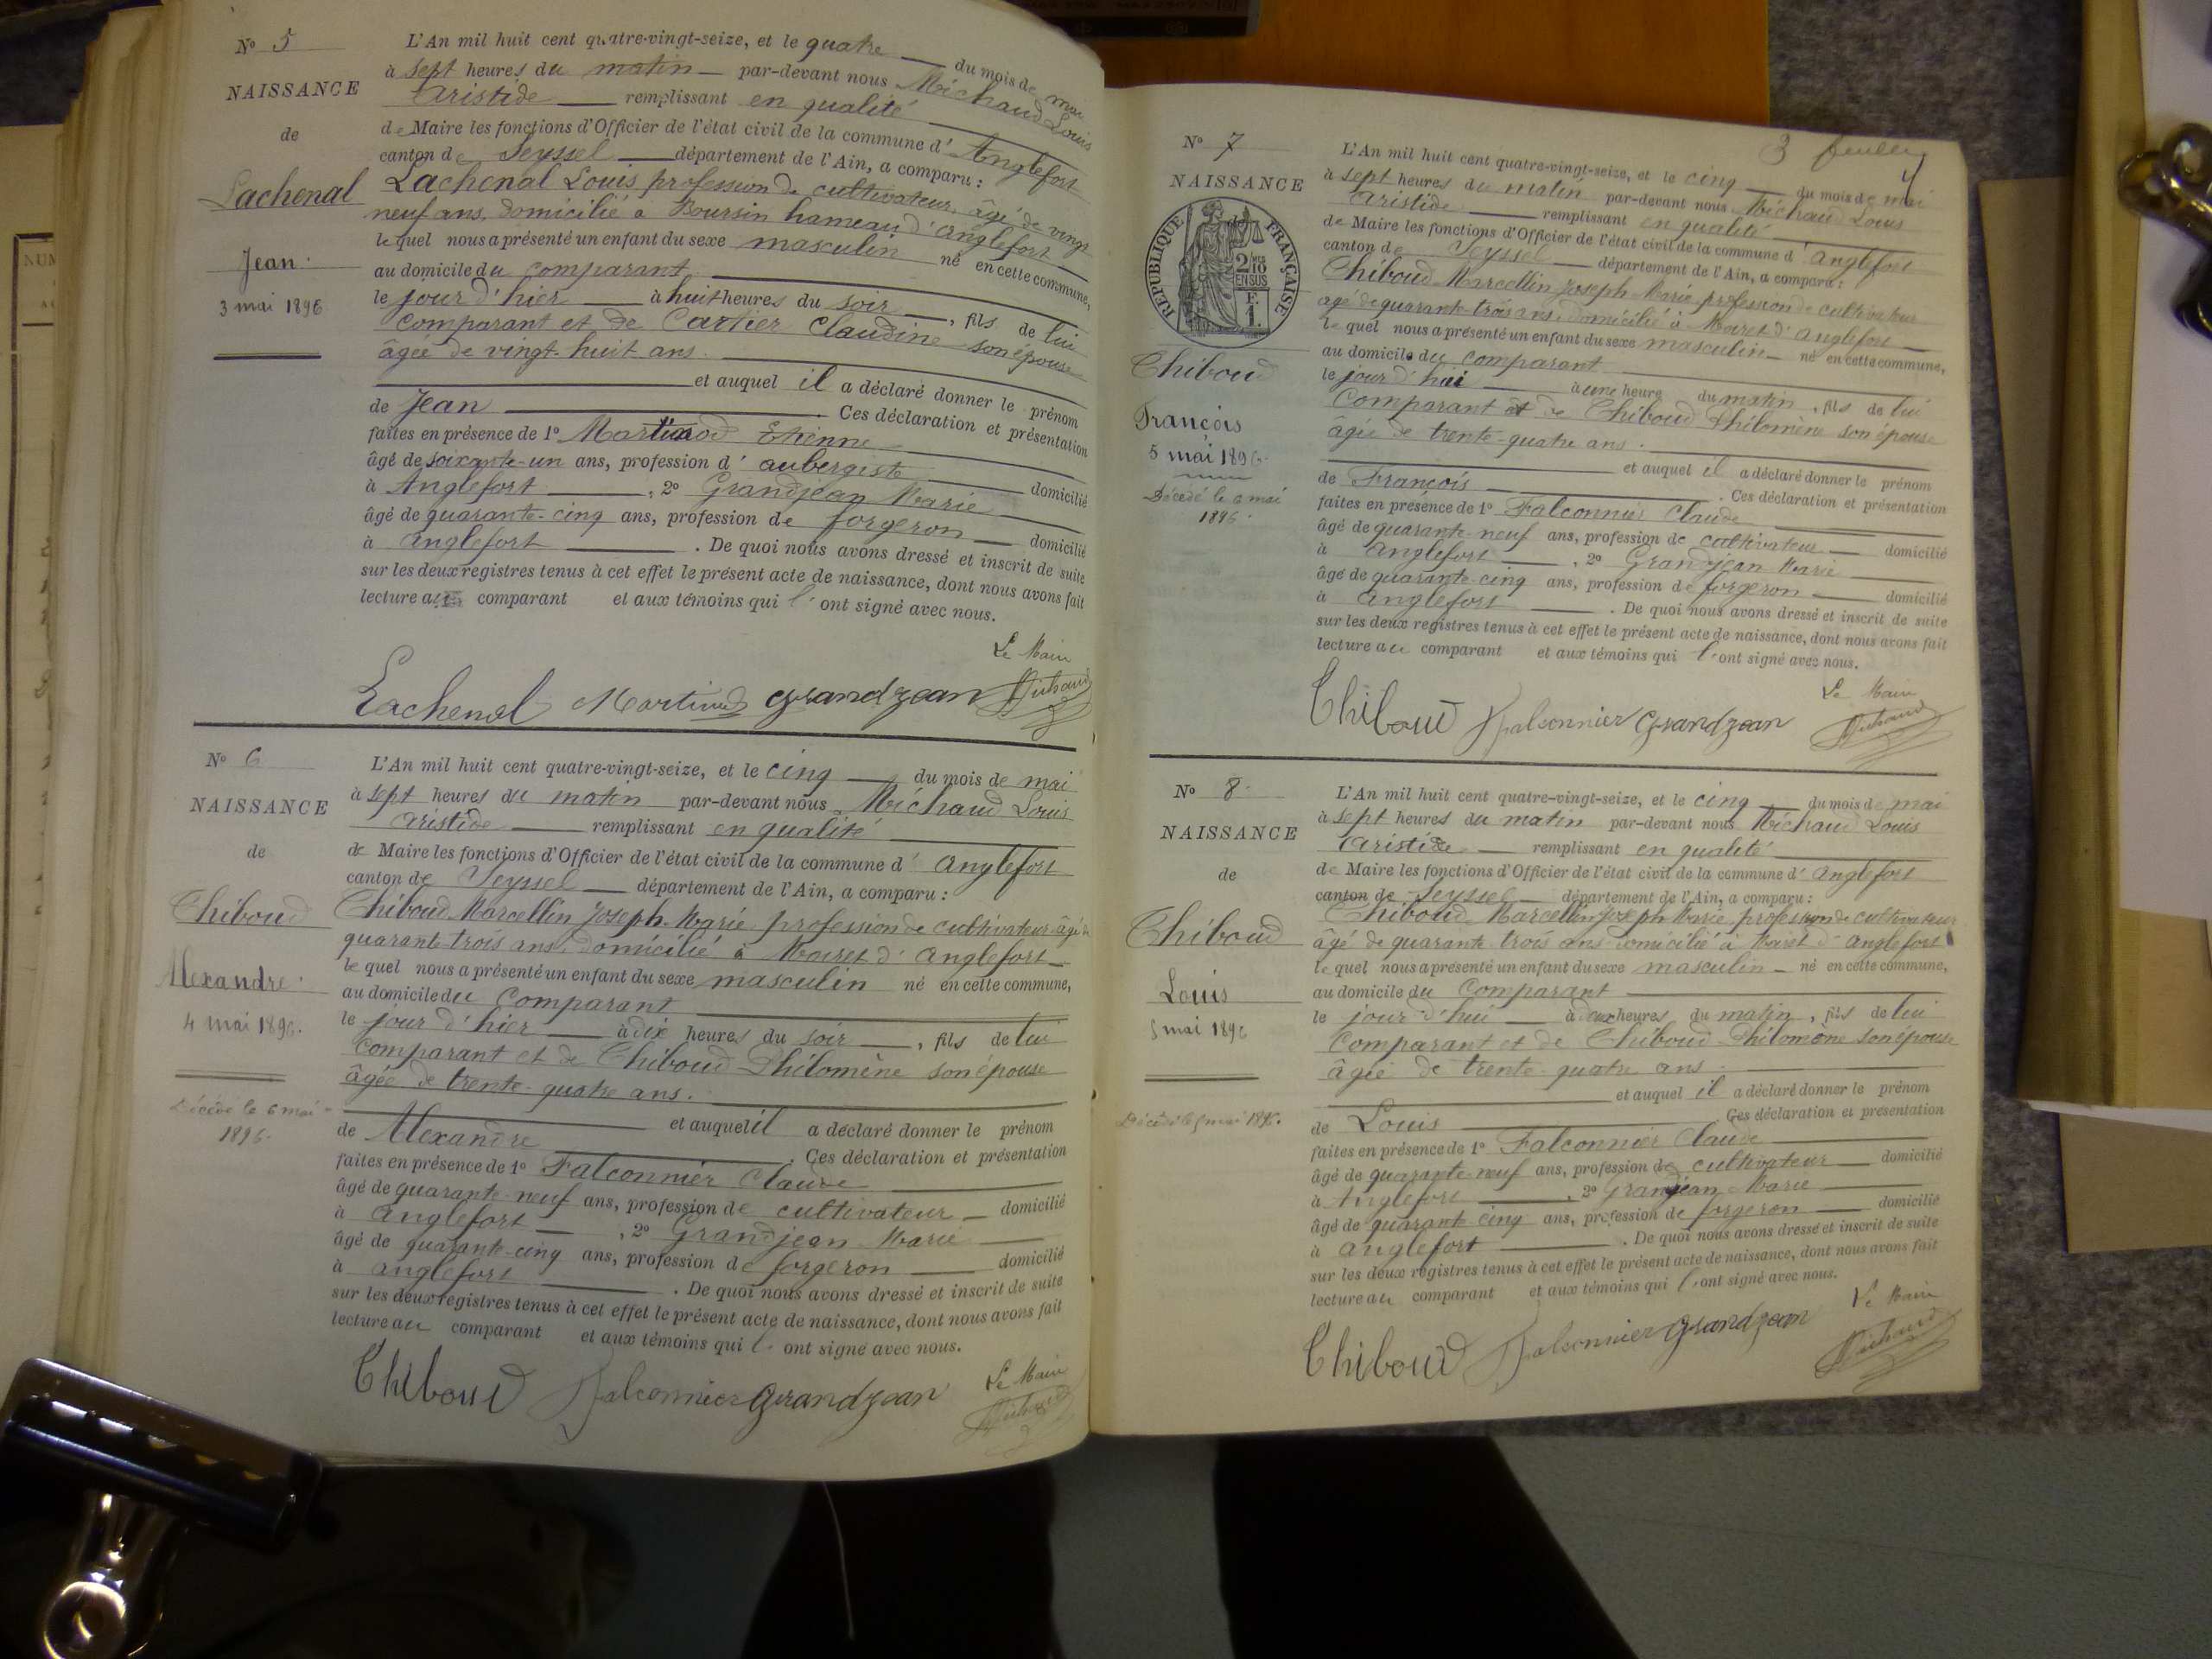 N° 5
NAISSANCE
de
Lachenal
Jean
3 mai 1896
L'An mil huit cent quatre-vingt-seize, et le quatre du mois de mai
à sept heures du matin par-devant nous Michaud Louis
Aristide remplissant en qualité
de Maire les fonctions d'Officier de l'état civil de la commune d'Anglefort
canton de Seyssel département de l'Ain, a comparu :
Lachenal Louis, profession de cultivateur, âgé de vingt
neuf ans, domicilié à Boursin hameau d'Anglefort
lequel nous a présenté un enfant du sexe masculin né en cette commune,
au domicile du comparant
le jour d'hier à huit heures du soir, fils de lui
comparant et de Cartier Claudine son épouse
âgée de vingt-huit ans.
et auquel il a déclaré donner le prénom
de Jean. Ces déclaration et présentation
faites en présence de 1° Martinod Etienne
âgé de soixante-un ans, profession d'aubergiste domicilié
à Anglefort, 2° Grandjean Marie
âgé de quarante-cinq ans, profession de forgeron domicilié
à Anglefort. De quoi nous avons dressé et inscrit de suite
sur les deux registres tenus à cet effet le présent acte de naissance, dont nous avons fait
lecture au comparant et aux témoins qui l'ont signé avec nous.
Le Maire
Lachenal Martinod Grandjean Michaud
N° 6
NAISSANCE
de
Thiboud
Alexandre
4 mai 1896.
Décédé le 6 mai
1896.
L'An mil huit cent quatre-vingt-seize, et le cinq du mois de mai
à sept heures du matin par-devant nous Michaud Louis
Aristide remplissant en qualité
de Maire les fonctions d'Officier de l'état civil de la commune d'Anglefort
canton de Seyssel département de l'Ain, a comparu :
Thiboud Marcellin Joseph Marie profession de cultivateur âgé de
quarante-trois ans, domicilié à Moiret d'Anglefort
lequel nous a présenté un enfant du sexe masculin né en cette commune,
au domicile du comparant
le jour d'hier à dix heures du soir, fils de lui
comparant et de Thiboud Philomène son épouse
âgée de trente-quatre ans.
et auquel il a déclaré donner le prénom
de Alexandre. Ces déclaration et présentation
faites en présence de 1° Falconnier Claude
âgé de quarante-neuf ans, profession de cultivateur domicilié
à Anglefort, 2° Grandjean Marie
âgé de quarante-cinq ans, profession de forgeron domicilié
à Anglefort. De quoi nous avons dressé et inscrit de suite
sur les deux registres tenus à cet effet le présent acte de naissance, dont nous avons fait
lecture au comparant et aux témoins qui l'ont signé avec nous.
Le Maire
Thiboud Falconnier Grandjean Michaud
3 feuillet
N° 7
NAISSANCE
de
RÉPUBLIQUE FRANÇAISE
2/10 EN SUS
F. 1.
Thiboud
François
5 mai 1896.
Décédé le 6 mai
1896.
L'An mil huit cent quatre-vingt-seize, et le cinq du mois de mai
à sept heures du matin par-devant nous Michaud Louis
Aristide remplissant en qualité
de Maire les fonctions d'Officier de l'état civil de la commune d'Anglefort
canton de Seyssel département de l'Ain, a comparu :
Thiboud Marcellin Joseph Marie profession de cultivateur
âgé de quarante-trois ans, domicilié à Moiret d'Anglefort
lequel nous a présenté un enfant du sexe masculin né en cette commune,
au domicile du comparant
le jour d'hui à une heure du matin, fils de lui
comparant et de Thiboud Philomène son épouse
âgée de trente-quatre ans.
et auquel il a déclaré donner le prénom
de François. Ces déclaration et présentation
faites en présence de 1° Falconnier Claude
âgé de quarante-neuf ans, profession de cultivateur domicilié
à Anglefort, 2° Grandjean Marie
âgé de quarante-cinq ans, profession de forgeron domicilié
à Anglefort. De quoi nous avons dressé et inscrit de suite
sur les deux registres tenus à cet effet le présent acte de naissance, dont nous avons fait
lecture au comparant et aux témoins qui l'ont signé avec nous.
Le Maire
Thiboud Falconnier Grandjean Michaud
N° 8
NAISSANCE
de
Thiboud
Louis
5 mai 1896
Décédé le mai 1896.
L'An mil huit cent quatre-vingt-seize, et le cinq du mois de mai
à sept heures du matin par-devant nous Michaud Louis
Aristide remplissant en qualité
de Maire les fonctions d'Officier de l'état civil de la commune d'Anglefort
canton de Seyssel département de l'Ain, a comparu :
Thiboud Marcellin Joseph Marie profession de cultivateur
âgé de quarante-trois ans domicilié à Moiret d'Anglefort
lequel nous a présenté un enfant du sexe masculin né en cette commune,
au domicile du comparant
le jour d'hui à deux heures du matin, fils de lui
comparant et de Thiboud Philomène son épouse
âgée de trente-quatre ans.
et auquel il a déclaré donner le prénom
de Louis. Ces déclaration et présentation
faites en présence de 1° Falconnier Claude
âgé de quarante-neuf ans, profession de cultivateur domicilié
à Anglefort, 2° Grandjean Marie
âgé de quarant cinq ans, profession de forgeron domicilié
à Anglefort. De quoi nous avons dressé et inscrit de suite
sur les deux registres tenus à cet effet le présent acte de naissance, dont nous avons fait
lecture au comparant et aux témoins qui l'ont signé avec nous.
Le Maire
Thiboud Falconnier Grandjean Michaud